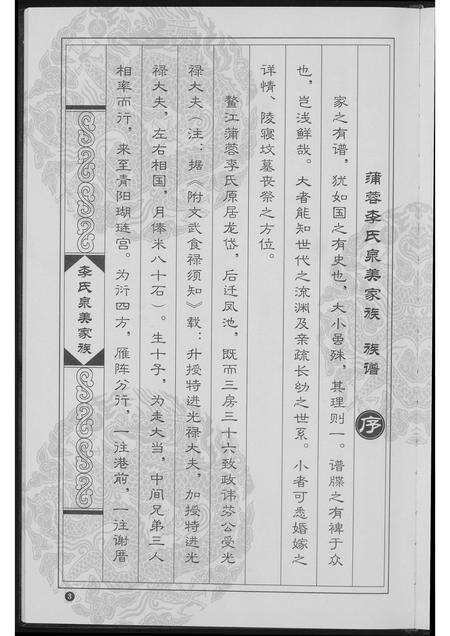 蒲蓉李氏泉美家族 族谱 序
家之有谱，犹如国之有史也，大小虽殊，其理则一。谱牒之有裨于众
也，岂浅鲜哉。大者能知世代之流渊及亲疏长幼之世系。小者可悉婚嫁之
详情、陵寝坟墓丧祭之方位。
鳌江蒲蓉李氏原居龙岱，后迁凤池，既而三房三十六致政讳芬公受光
禄大夫（注：据《附文武食禄须知》载：升授特进光禄大夫，加授特进光
禄大夫，左右相国，月俸米八十石）。生十子，为走大当，中间兄弟三人
相率而行，来至青阳瑚琏宫。为衍四方，雁阵分行，一往港前，一往谢厝
李氏泉美家族
3